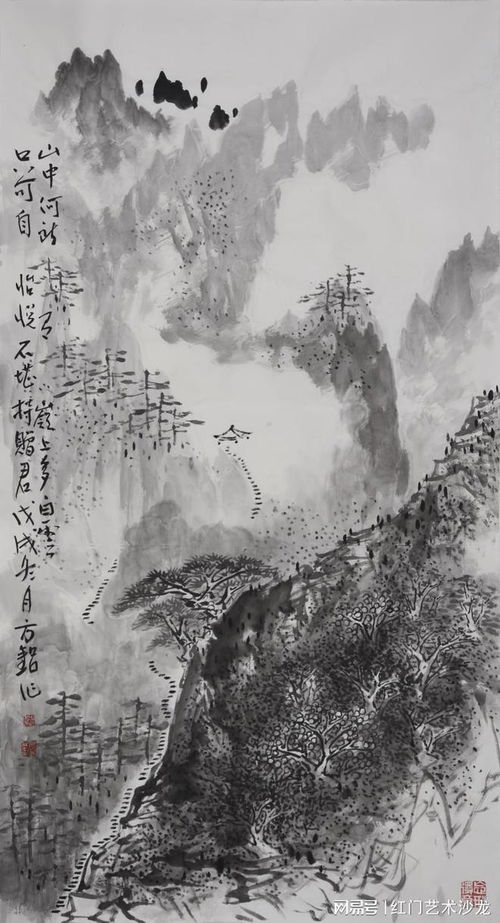 山中何所有嶺上多白雲
只可自怡悦不堪持贈君戊戌冬月方作
网易号 | 红门艺术沙龙